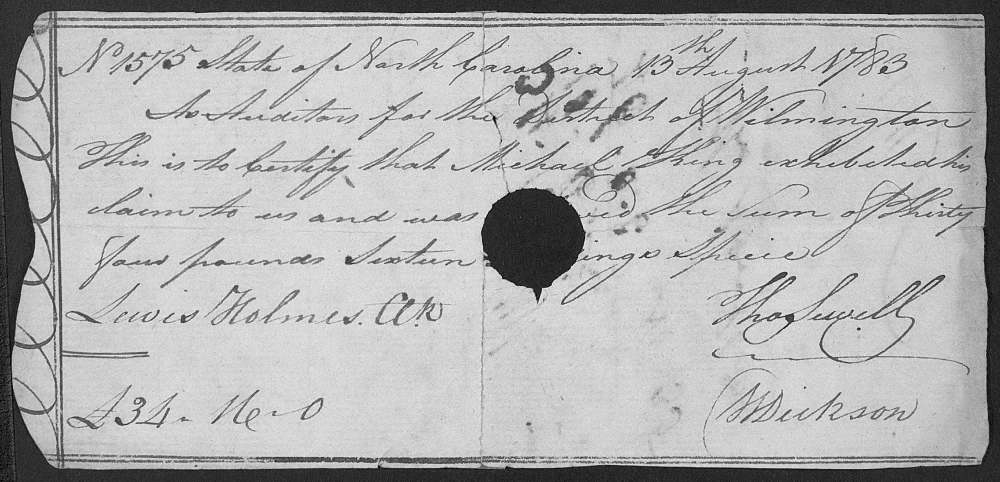 No 1575 State of North Carolina 13th August 1783
As Auditors for the District of Wilmington
This is to Certify that Michael King exhibited his
claim to us and was the Sum of Thirty
four pounds Sixteen ings Specie
Lewis Holmes. Clk Tho Sewell
£34 " 16 " 0 Dickson